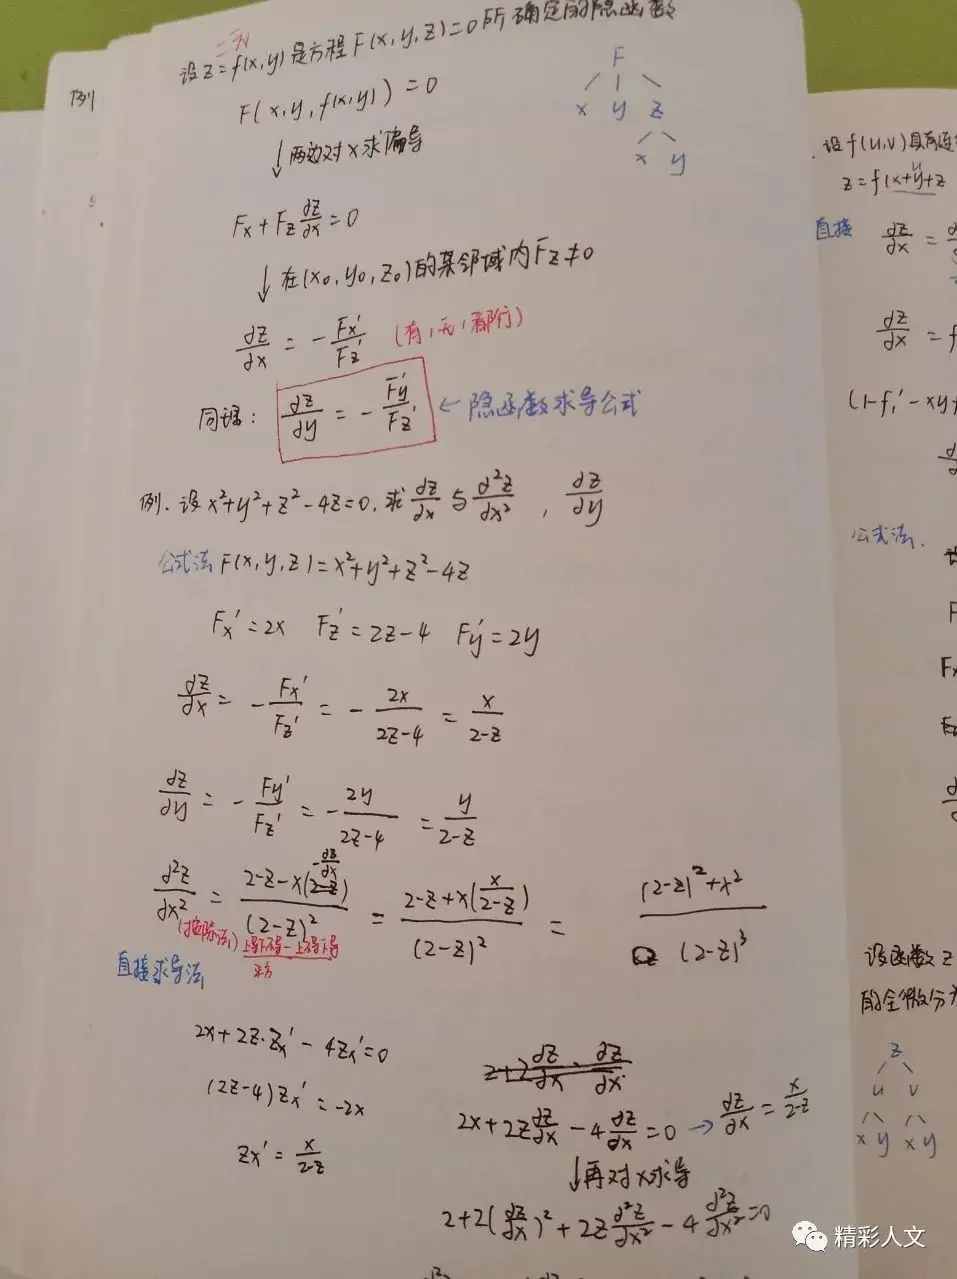 二元
例
设z=f(x,y)是方程F(x,y,z)=0所确定的隐函数
F(x,y,f(x,y))=0
F
x y z
x y
↓两边对x求偏导
Fx+Fz ∂z/∂x=0
↓在(x₀,y₀,z₀)的某邻域内Fz≠0
∂z/∂x = -Fx'/Fz' (有'无'都行)
同理: ∂z/∂y = -Fy'/Fz' ←隐函数求导公式
例.设x²+y²+z²-4z=0,求∂z/∂x与∂²z/∂x², ∂z/∂y
公式法 F(x,y,z)=x²+y²+z²-4z
Fx'=2x Fz'=2z-4 Fy'=2y
∂z/∂x = -Fx'/Fz' = -2x/(2z-4) = x/(2-z)
∂z/∂y = -Fy'/Fz' = -2y/(2z-4) = y/(2-z)
∂²z/∂x² = (2-z-x(-∂z/∂x))/(2-z)² = (2-z+x(x/(2-z)))/(2-z)² = ((2-z)²+x²)/(2-z)³
(按除法) 上导下不导-上不导下导
平方
直接求导法
2x+2z·zx'-4zx'=0
(2z-4)zx'=-2x
zx'=x/(2-z)
2x+2z ∂z/∂x-4 ∂z/∂x=0 → ∂z/∂x=x/(2-z)
↓再对x求导
2+2(∂z/∂x)²+2z ∂²z/∂x²-4 ∂²z/∂x²=0
设f(u,v)具有连
z=f(x+y+z
u
直接 ∂z/∂x =
∂z/∂x = f
(1-f₁'-xy
公式法.
设函数z
的全微分
z
u v
x y x y
精彩人文